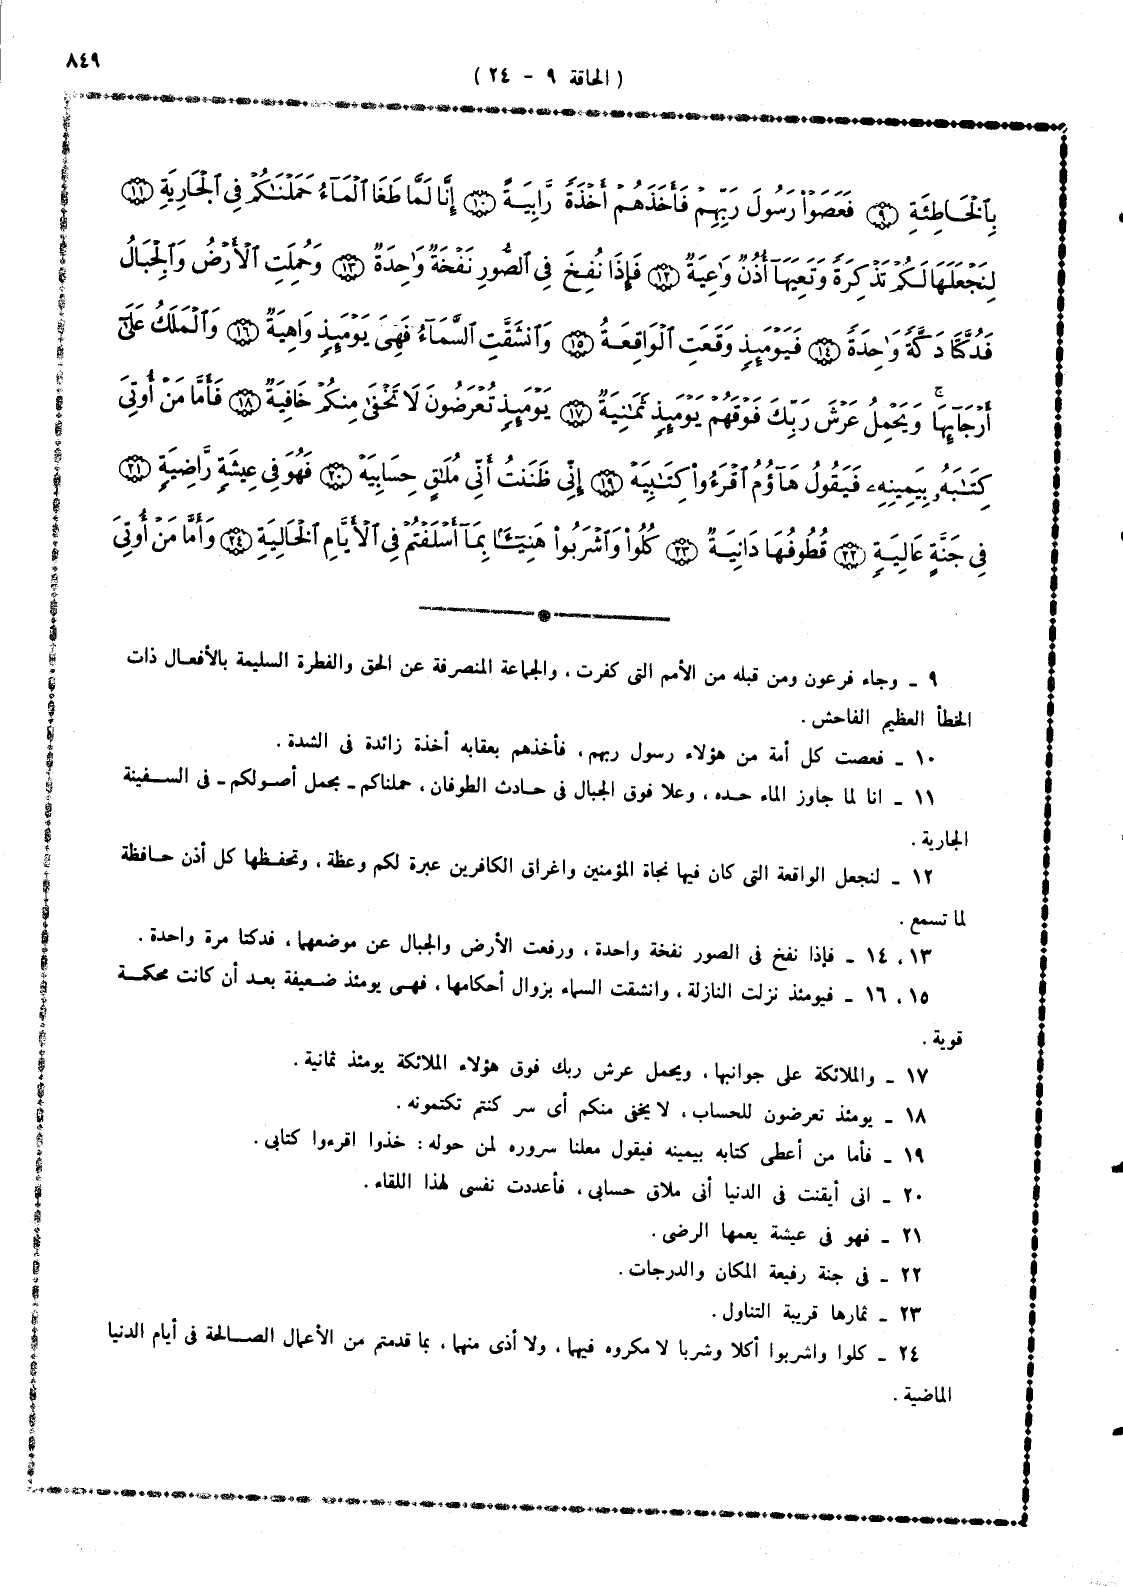 ٨٤٩
( الحاقة ٩ - ٢٤ )
بِٱلْخَاطِئَةِ ٩ فَعَصَوْاْ رَسُولَ رَبِّهِمْ فَأَخَذَهُمْ أَخْذَةً رَّابِيَةً ١٠ إِنَّا لَمَّا طَغَا ٱلْمَآءُ حَمَلْنَٰكُمْ فِى ٱلْجَارِيَةِ ١١
لِنَجْعَلَهَا لَكُمْ تَذْكِرَةً وَتَعِيَهَآ أُذُنٌ وَٰعِيَةٌ ١٢ فَإِذَا نُفِخَ فِى ٱلصُّورِ نَفْخَةٌ وَٰحِدَةٌ ١٣ وَحُمِلَتِ ٱلْأَرْضُ وَٱلْجِبَالُ
فَدُكَّتَا دَكَّةً وَٰحِدَةً ١٤ فَيَوْمَئِذٍ وَقَعَتِ ٱلْوَاقِعَةُ ١٥ وَٱنشَقَّتِ ٱلسَّمَآءُ فَهِىَ يَوْمَئِذٍ وَاهِيَةٌ ١٦ وَٱلْمَلَكُ عَلَىٰٓ
أَرْجَآئِهَا ۚ وَيَحْمِلُ عَرْشَ رَبِّكَ فَوْقَهُمْ يَوْمَئِذٍ ثَمَٰنِيَةٌ ١٧ يَوْمَئِذٍ تُعْرَضُونَ لَا تَخْفَىٰ مِنكُمْ خَافِيَةٌ ١٨ فَأَمَّا مَنْ أُوتِىَ
كِتَٰبَهُۥ بِيَمِينِهِۦ فَيَقُولُ هَآؤُمُ ٱقْرَءُواْ كِتَٰبِيَهْ ١٩ إِنِّى ظَنَنتُ أَنِّى مُلَٰقٍ حِسَابِيَهْ ٢٠ فَهُوَ فِى عِيشَةٍ رَّاضِيَةٍ ٢١
فِى جَنَّةٍ عَالِيَةٍ ٢٢ قُطُوفُهَا دَانِيَةٌ ٢٣ كُلُواْ وَٱشْرَبُواْ هَنِيٓـَٔۢا بِمَآ أَسْلَفْتُمْ فِى ٱلْأَيَّامِ ٱلْخَالِيَةِ ٢٤ وَأَمَّا مَنْ أُوتِىَ
٩ ـ وجاء فرعون ومن قبله من الأمم التى كفرت ، والجماعة المنصرفة عن الحق والفطرة السليمة بالأفعال ذات
الخطأ العظيم الفاحش .
١٠ ـ فعصت كل أمة من هؤلاء رسول ربهم ، فأخذهم بعقابه أخذة زائدة فى الشدة .
١١ ـ انا لما جاوز الماء حده ، وعلا فوق الجبال فى حادث الطوفان ، حملناكم ـ بحمل أصولكم ـ فى السفينة
الجارية .
١٢ ـ لنجعل الواقعة التى كان فيها نجاة المؤمنين واغراق الكافرين عبرة لكم وعظة ، وتحفظها كل أذن حافظة
لما تسمع .
١٣ ، ١٤ ـ فإذا نفخ فى الصور نفخة واحدة ، ورفعت الأرض والجبال عن موضعهما ، فدكتا مرة واحدة .
١٥ ، ١٦ ـ فيومئذ نزلت النازلة ، وانشقت السماء بزوال أحكامها ، فهى يومئذ ضعيفة بعد أن كانت محكمة
قوية .
١٧ ـ والملائكة على جوانبها ، ويحمل عرش ربك فوق هؤلاء الملائكة يومئذ ثمانية .
١٨ ـ يومئذ تعرضون للحساب ، لا يخفى منكم أى سر كنتم تكتمونه .
١٩ ـ فأما من أعطى كتابه بيمينه فيقول معلنا سروره لمن حوله : خذوا اقرءوا كتابى .
٢٠ ـ انى أيقنت فى الدنيا أنى ملاق حسابى ، فأعددت نفسى لهذا اللقاء .
٢١ ـ فهو فى عيشة يعمها الرضى .
٢٢ ـ فى جنة رفيعة المكان والدرجات .
٢٣ ـ ثمارها قريبة التناول .
٢٤ ـ كلوا واشربوا أكلا وشربا لا مكروه فيهما ، ولا أذى منهما ، بما قدمتم من الأعمال الصالحة فى أيام الدنيا
الماضية .